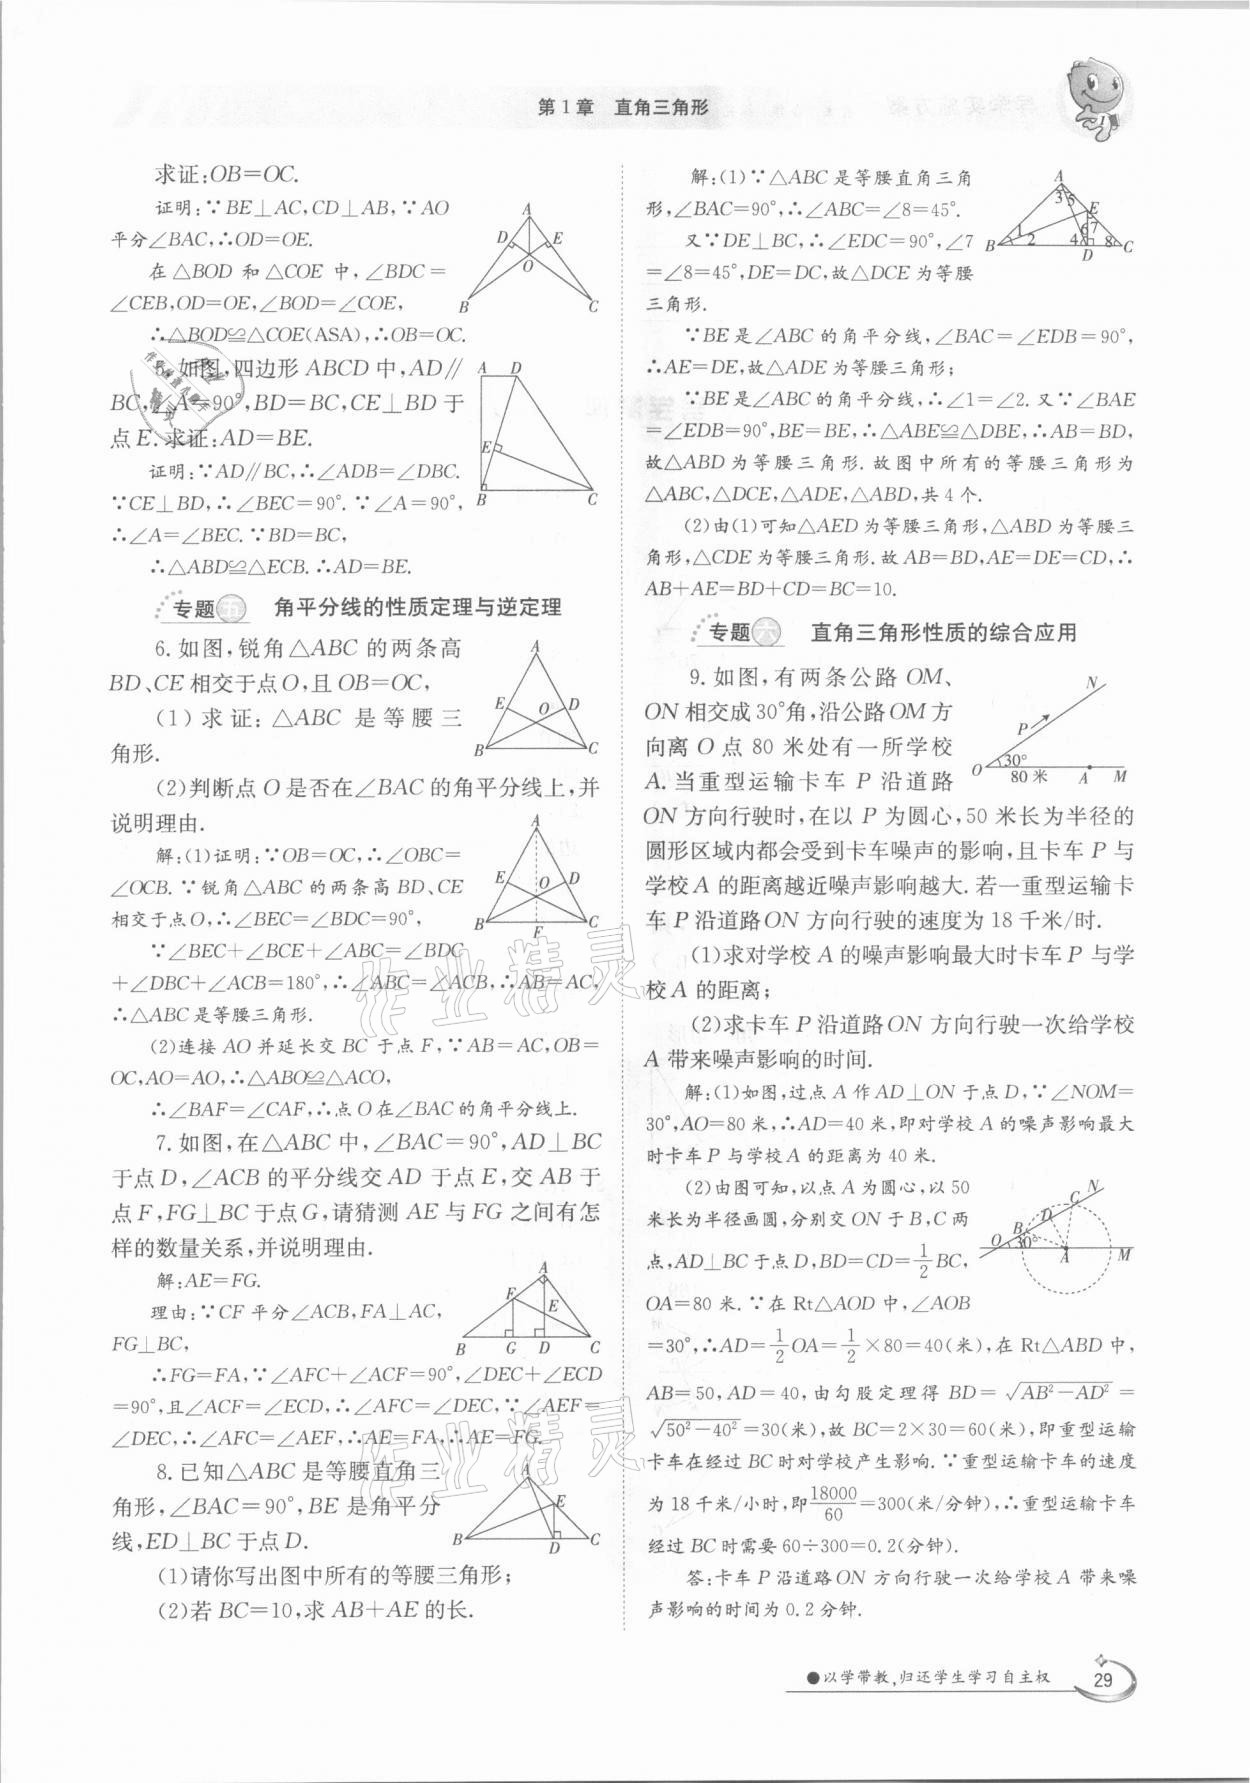 第1章　直角三角形
求证:OB=OC.
证明:∵BE⊥AC,CD⊥AB,∵AO
平分∠BAC,∴OD=OE.
在△BOD 和△COE 中,∠BDC=
∠CEB,OD=OE,∠BOD=∠COE,
∴△BOD≌△COE(ASA),∴OB=OC.
A
D E
O
B C
5. 如图,四边形 ABCD 中,AD∥
BC,∠A=90°,BD=BC,CE⊥BD于
点E.求证:AD=BE.
证明:∵AD∥BC,∴∠ADB=∠DBC.
∵CE⊥BD,∴∠BEC=90°.∵∠A=90°,
∴∠A=∠BEC.∵BD=BC,
∴△ABD≌△ECB.∴AD=BE.
A D
E
B C
专题五　角平分线的性质定理与逆定理
6.如图,锐角△ABC的两条高
BD、CE相交于点O,且OB=OC,
(1)求证:△ABC是等腰三
角形.
(2)判断点O是否在∠BAC的角平分线上,并
说明理由.
A
E O D
B C
解:(1)证明:∵OB=OC,∴∠OBC=
∠OCB.∵锐角△ABC的两条高BD、CE
相交于点O,∴∠BEC=∠BDC=90°,
∵∠BEC+∠BCE+∠ABC=∠BDC
+∠DBC+∠ACB=180°,∴∠ABC=∠ACB,∴AB=AC,
∴△ABC是等腰三角形.
(2)连接AO并延长交BC于点F,∵AB=AC,OB=
OC,AO=AO,∴△ABO≌△ACO,
∴∠BAF=∠CAF,∴点O在∠BAC的角平分线上.
A
E O D
B F C
7.如图,在△ABC中,∠BAC=90°,AD⊥BC
于点D,∠ACB的平分线交AD于点E,交AB于
点F,FG⊥BC于点G,请猜测AE与FG之间有怎
样的数量关系,并说明理由.
解:AE=FG.
理由:∵CF平分∠ACB,FA⊥AC,
FG⊥BC,
∴FG=FA,∵∠AFC+∠ACF=90°,∠DEC+∠ECD
=90°,且∠ACF=∠ECD,∴∠AFC=∠DEC,∵∠AEF=
∠DEC,∴∠AFC=∠AEF,∴AE=FA,∴AE=FG.
A
F E
B G D C
8.已知△ABC是等腰直角三
角形,∠BAC=90°,BE是角平分
线,ED⊥BC于点D.
(1)请你写出图中所有的等腰三角形;
(2)若BC=10,求AB+AE的长.
A
E
B D C
解:(1)∵△ABC是等腰直角三角
形,∠BAC=90°,∴∠ABC=∠8=45°.
又∵DE⊥BC,∴∠EDC=90°,∠7
=∠8=45°,DE=DC,故△DCE为等腰
三角形.
A
3 5
E
1 6 7
B 2 4 8 C
D
∵BE是∠ABC的角平分线,∠BAC=∠EDB=90°,
∴AE=DE,故△ADE为等腰三角形;
∵BE是∠ABC的角平分线,∴∠1=∠2.又∵∠BAE
=∠EDB=90°,BE=BE,∴△ABE≌△DBE,∴AB=BD,
故△ABD为等腰三角形.故图中所有的等腰三角形为
△ABC,△DCE,△ADE,△ABD,共4个.
(2)由(1)可知△AED为等腰三角形,△ABD为等腰三
角形,△CDE为等腰三角形.故AB=BD,AE=DE=CD,∴
AB+AE=BD+CD=BC=10.
专题六　直角三角形性质的综合应用
9.如图,有两条公路OM、
ON相交成30°角,沿公路OM方
向离O点80米处有一所学校
A.当重型运输卡车P沿道路
ON方向行驶时,在以P为圆心,50米长为半径的
圆形区域内都会受到卡车噪声的影响,且卡车P与
学校A的距离越近噪声影响越大.若一重型运输卡
车P沿道路ON方向行驶的速度为18千米/时.
N
P
30°
O 80米 A M
(1)求对学校A的噪声影响最大时卡车P与学
校A的距离;
(2)求卡车P沿道路ON方向行驶一次给学校
A带来噪声影响的时间.
解:(1)如图,过点A作AD⊥ON于点D,∵∠NOM=
30°,AO=80米,∴AD=40米,即对学校A的噪声影响最大
时卡车P与学校A的距离为40米.
(2)由图可知,以点A为圆心,以50
米长为半径画圆,分别交ON于B,C两
点,AD⊥BC于点D,BD=CD=1/2BC,
OA=80米.∵在Rt△AOD中,∠AOB
=30°,∴AD=1/2OA=1/2×80=40(米),在Rt△ABD中,
AB=50,AD=40,由勾股定理得BD=√(AB²−AD²)=
√(50²−40²)=30(米),故BC=2×30=60(米),即重型运输
卡车在经过BC时对学校产生影响.∵重型运输卡车的速度
为18千米/小时,即18000/60=300(米/分钟),∴重型运输卡车
经过BC时需要60÷300=0.2(分钟).
答:卡车P沿道路ON方向行驶一次给学校A带来噪
声影响的时间为0.2分钟.
C N
D
B
O 30° A M
●以学带教,归还学生学习自主权
29
作业精灵
作业精灵